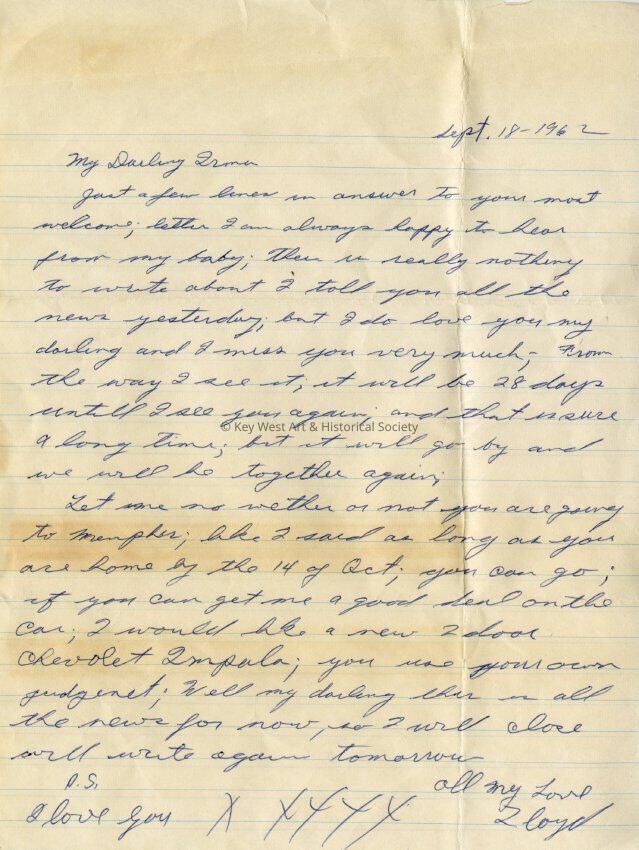 Sept. 18-1962
My Darling Irma
Just a few lines in answer to your most
welcome; letter I am always happy to hear
from my baby; ther is really nothing
to write about I told you all the
news yesterday; but I do love you my
darling and I miss you very much; From
the way I see it; it will be 28 days
untill I see you again; and that is sure
© Key West Art & Historical Society
a long time; but it will go by and
we will be together again;
Let me no wether or not you are going
to Memphis; like I said as long as you
are home by the 14 of Oct; you can go;
if you can get me a good deal on the
car; I would like a new 2 door
Chevolet Impala; you use your own
judgenet; Well my darling this is all
the news for now, so I will close
will write again tomorrow
P.S. All My Love
I love you X XXXX Lloyd